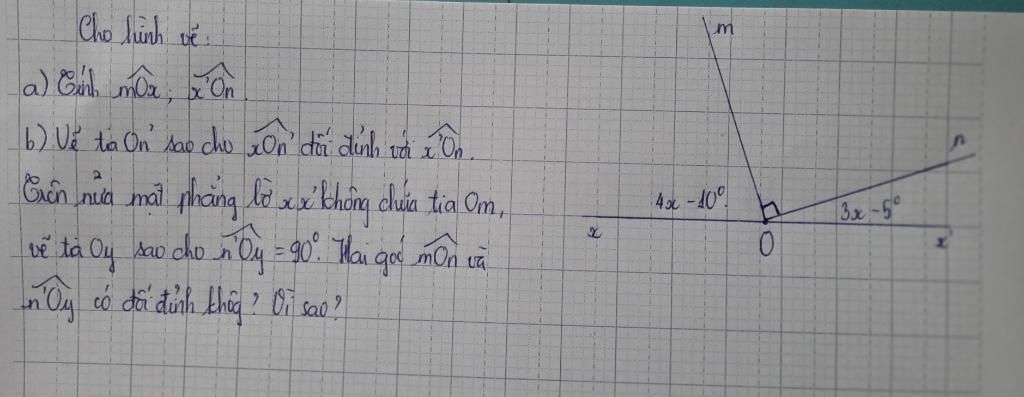 Cho hình vẽ:
a) Tính mOx; x'On.
b) Vẽ tia On' sao cho xOn' đối đỉnh với x'On.
Trên nửa mặt phẳng bờ xx' không chứa tia Om,
vẽ tia Oy sao cho n'Oy = 90°. Hai góc mOn và
n'Oy có đối đỉnh không? Vì sao?
m
n
4x - 10°
3x - 5°
x
O
x'